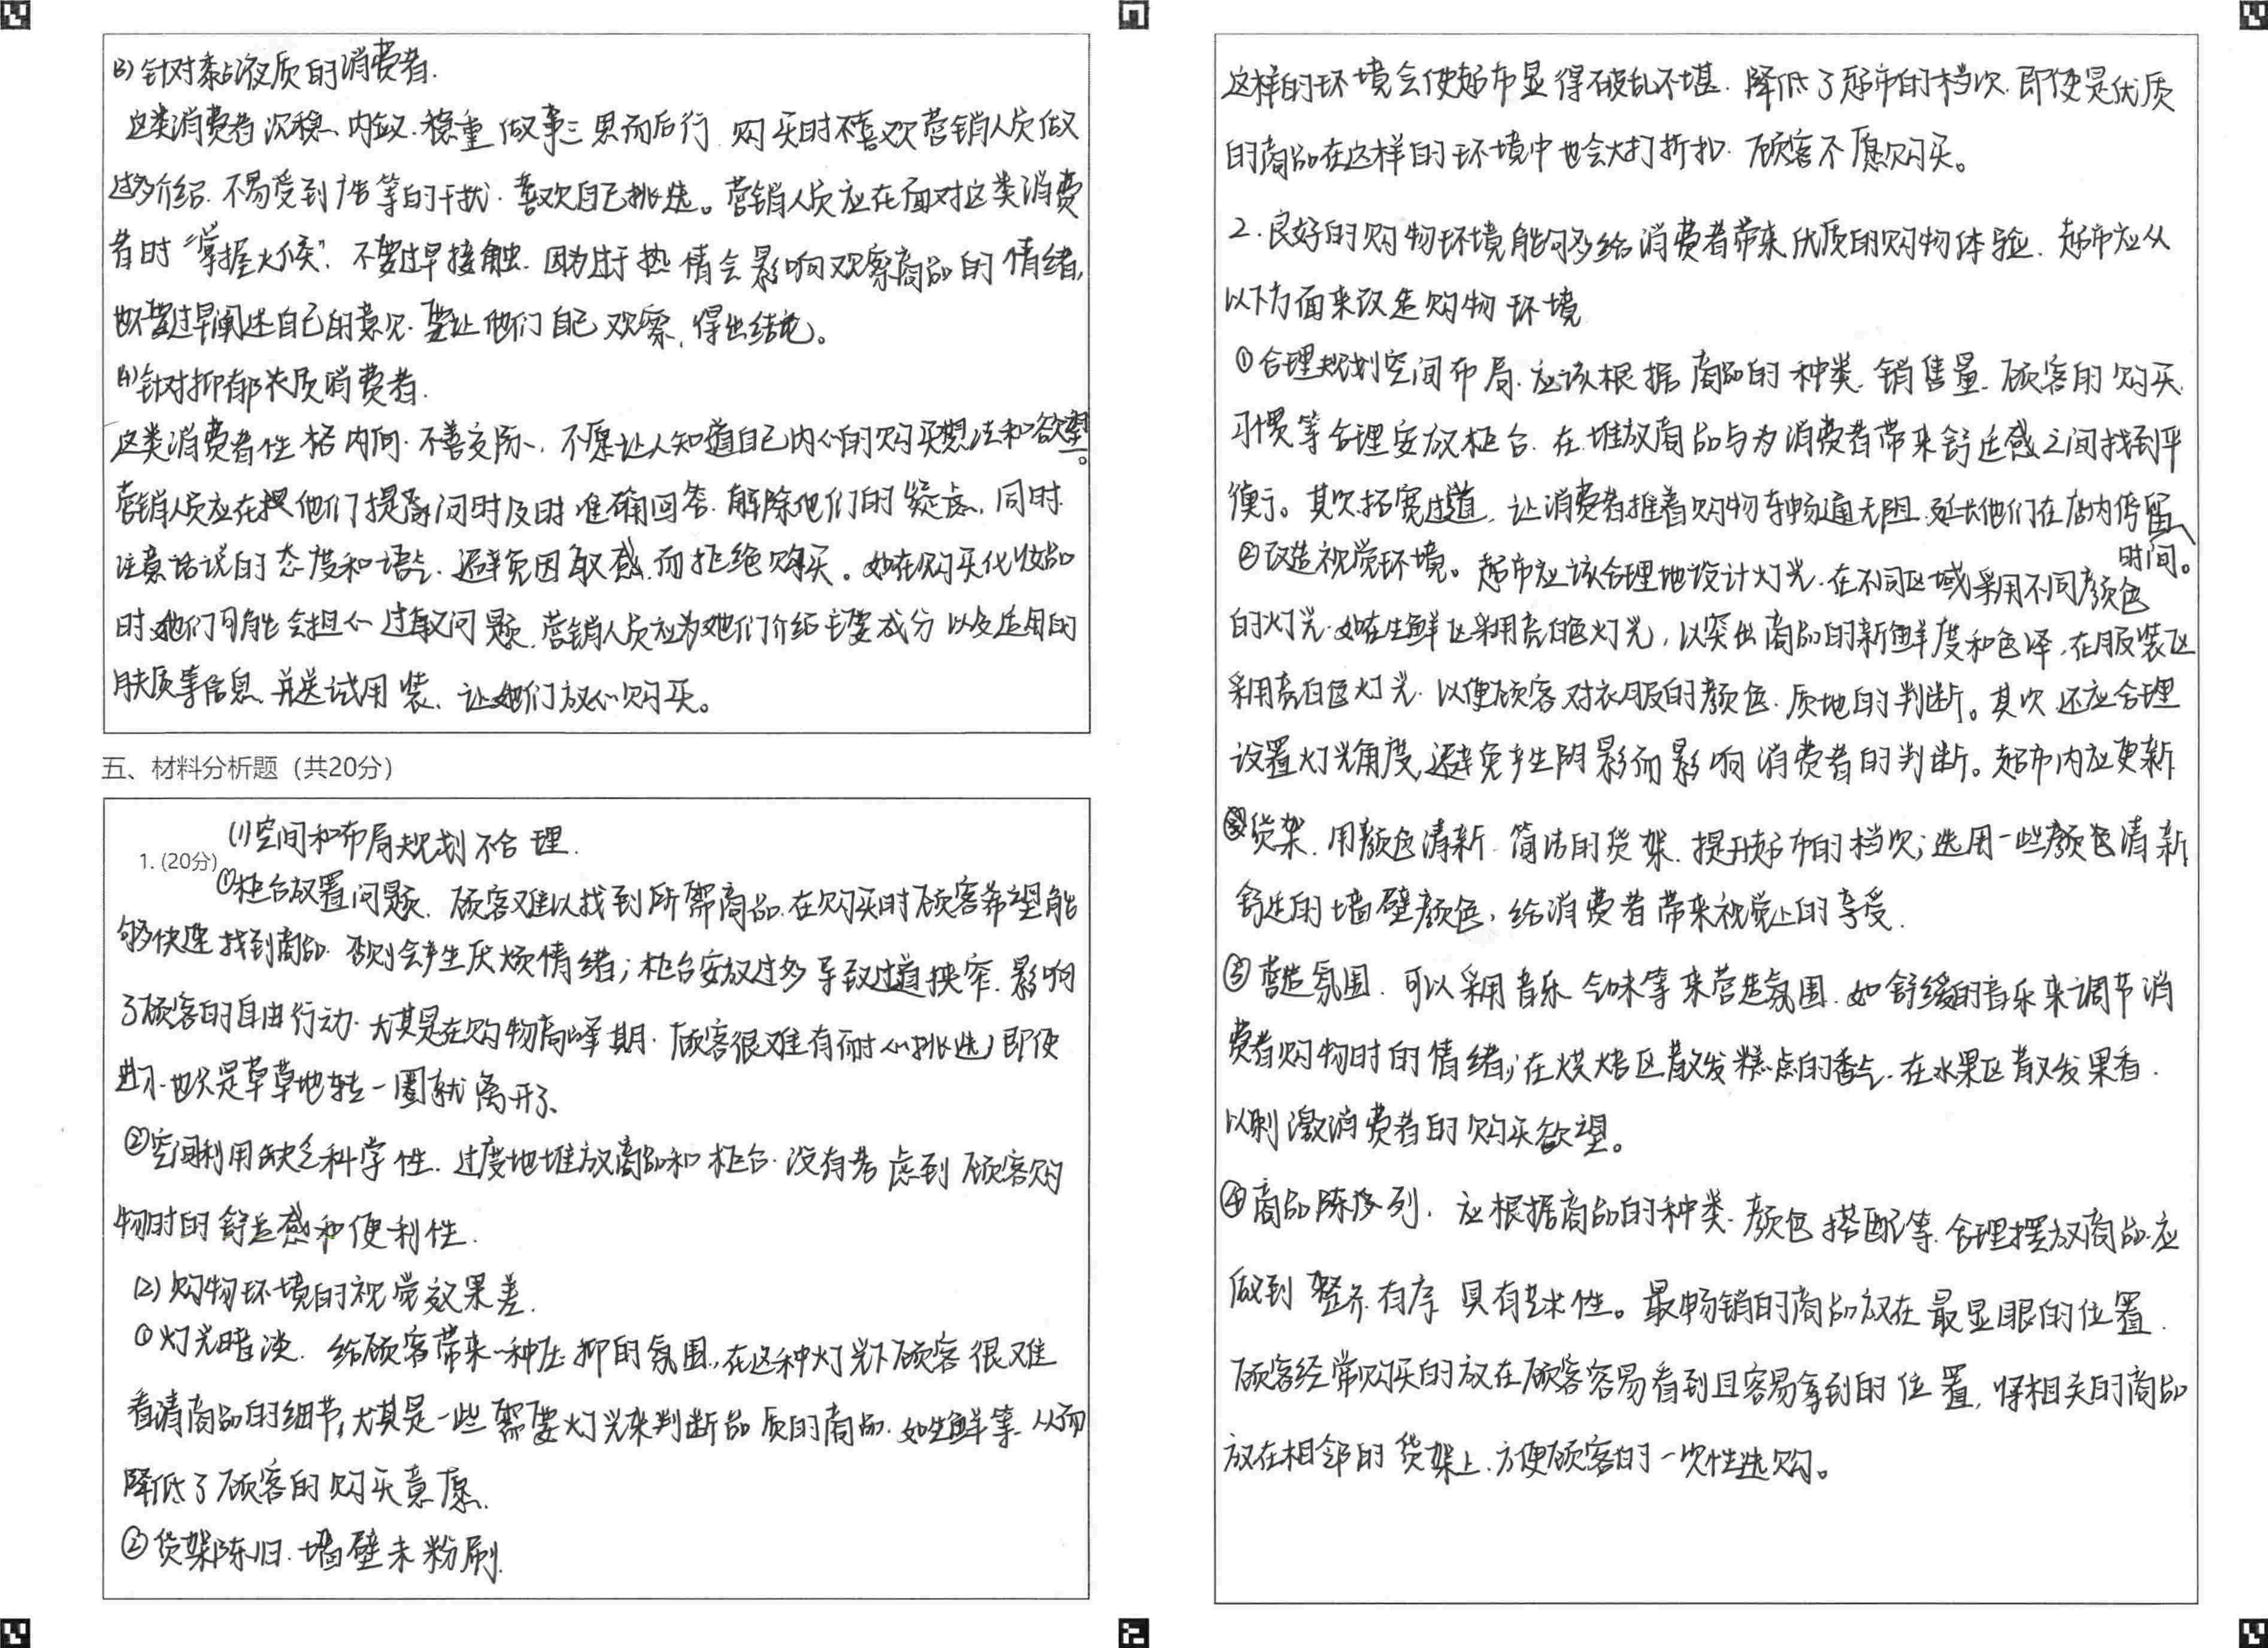 (3)针对黏液质的消费者.
这类消费者沉稳、内敛、稳重做事三思而后行.购买时不喜欢营销人员做
过多介绍.不易受到广告等的干扰.喜欢自己挑选。营销人员应在面对这类消费
者时“掌握火候”.不要过早接触.因为过于热情会影响观察商品的情绪,
也不要过早阐述自己的意见.要让他们自己观察,得出结论。
(4)针对抑郁质消费者.
这类消费者性格内向.不善交际、不愿让人知道自己内心的购买想法和欲望。
营销人员应在他们提问时及时准确回答.解除他们的疑虑,同时.
注意话说的态度和语气.避免因敏感而拒绝购买。如在购买化妆品
时她们可能会担心过敏问题.营销人员应为她们介绍主要成分以及适用的
肤质等信息.并送试用装、让她们放心购买。
五、材料分析题（共20分）
(1)空间和布局规划不合理.
1. (20分)
①柜台放置问题.顾客难以找到所需商品.在购买时顾客希望能
够快速找到商品.否则会产生厌烦情绪;柜台安放过多导致过道狭窄.影响
了顾客的自由行动.尤其是在购物高峰期.顾客很难有耐心挑选,即使
进了.也只是草草地转一圈就离开了、
②空间利用缺乏科学性.过度地堆放商品和柜台.没有考虑到顾客购
物时的舒适感和便利性.
(2)购物环境的视觉效果差.
①灯光暗淡.给顾客带来一种压抑的氛围,在这种灯光下顾客很难
看清商品的细节,尤其是一些需要灯光来判断品质的商品.如生鲜等.从而
降低了顾客的购买意愿.
②货架陈旧.墙壁未粉刷.
这样的环境会使超市显得破乱不堪.降低了超市的档次.即使是优质
的商品在这样的环境中也会大打折扣.顾客不愿购买。
2.良好的购物环境能够给消费者带来优质的购物体验.超市应从
以下方面来改造购物环境
①合理规划空间布局.应该根据商品的种类.销售量.顾客的购买
习惯等合理安放柜台.在堆放商品与为消费者带来舒适感之间找到平
衡。其次拓宽过道,让消费者推着购物车畅通无阻.延长他们在店内停留
时间。
②改造视觉环境。超市应该合理地设计灯光.在不同区域采用不同颜色
的灯光.如在生鲜区采用亮白色灯光,以突出商品的新鲜度和色泽,在服装区
采用亮白色灯光.以便顾客对衣服的颜色.质地的判断。其次还应合理
设置灯光角度,避免产生阴影而影响消费者的判断。超市内应更新
货架.用颜色清新.简洁的货架.提升超市的档次;选用一些颜色清新
舒适的墙壁颜色,给消费者带来视觉上的享受.
③营造氛围.可以采用音乐气味等来营造氛围.如舒缓的音乐来调节消
费者购物时的情绪;在烘焙区散发糕点的香气.在水果区散发果香.
以刺激消费者的购买欲望。
④商品陈列.应根据商品的种类.颜色搭配等.合理摆放商品.应
做到整齐有序具有艺术性。最畅销的商品放在最显眼的位置.
顾客经常购买的放在顾客容易看到且容易拿到的位置,将相关的商品
放在相邻的货架上.方便顾客的一次性选购。